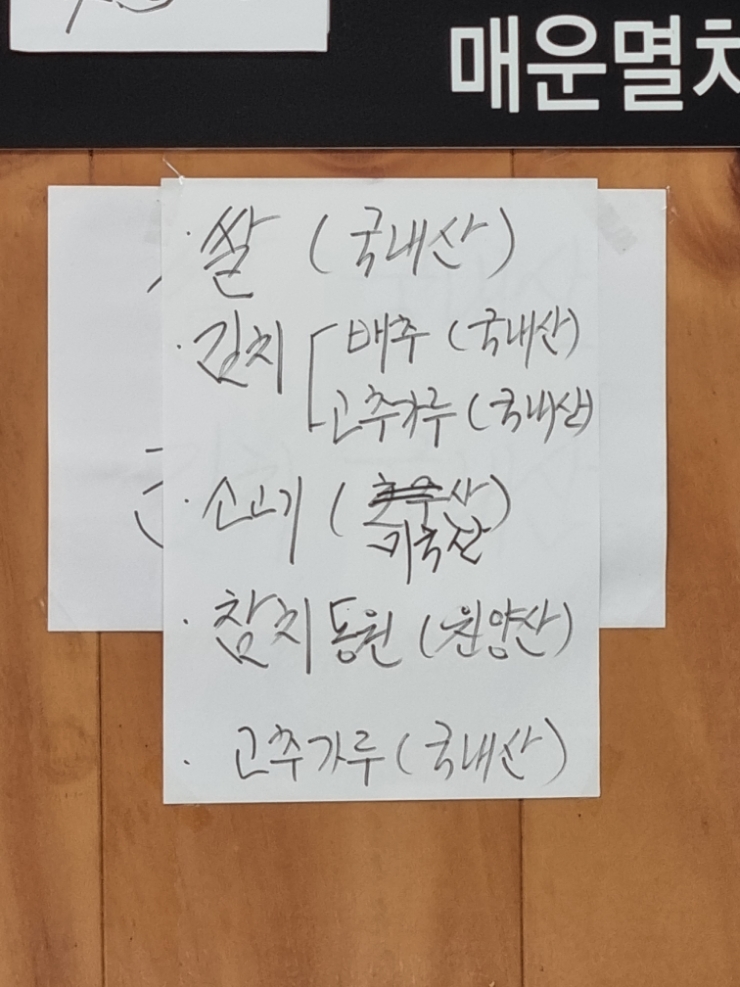 매운멸치
· 쌀 (국내산)
· 김치 [ 배추 (국내산)
고추가루 (국내산)
· 소고기 (호주산)
미국산
· 참치 동원 (원양산)
· 고추가루 (국내산)